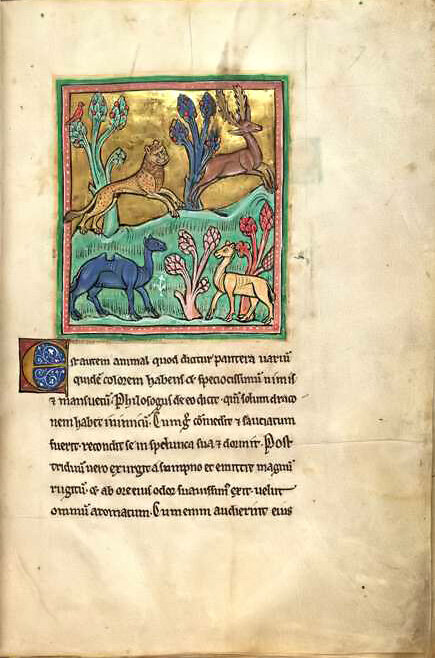 Est autem animal quod dicitur pantera varium
quidē colorem habens & speciosissimū nimis
& mansuetū. Philosogus de eo dicit. qm̄ solum draco
nem habet inimicū. Cum g̊ comederit & saciatum
fuerit. recondit se in spelunca sua & dormit. Post
triduum vero exurgit a sumpno et emittit magnū
rugitū. & ab ore eius odor suavissim᷒ exit. velut
omniū aromatum. Cum enim audierint eius